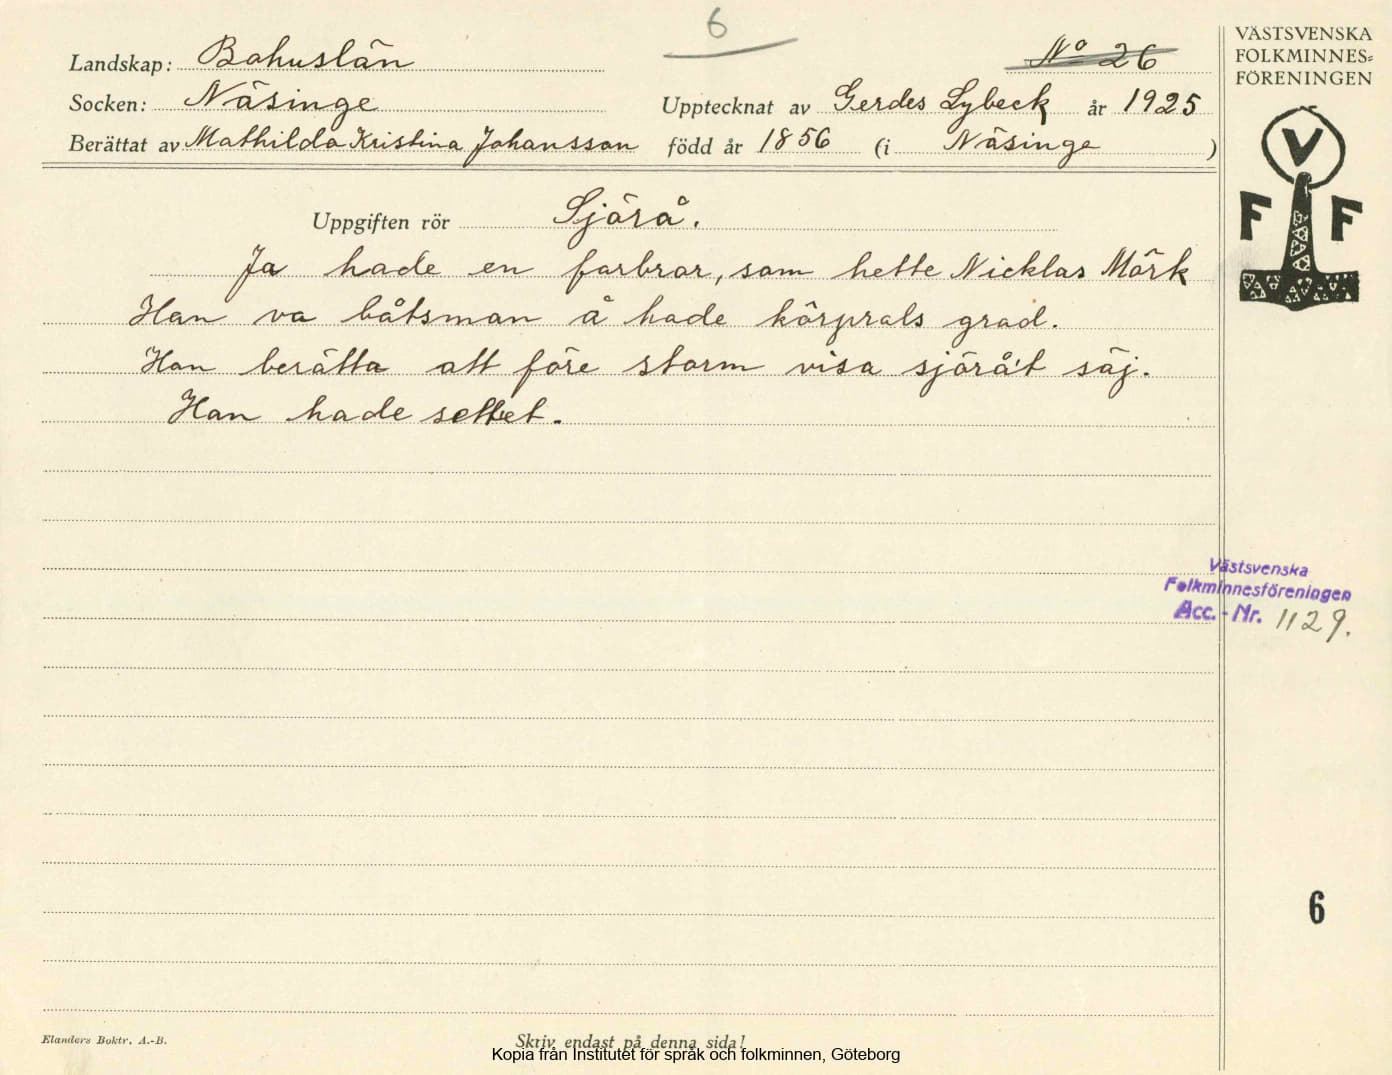 6
Nº 26
Landskap: Bohuslän
Socken: Näsinge
Upptecknat av Gerdes Lybeck år 1925
Berättat av Mathilda Kristina Johansson född år 1856 (i Näsinge )
VÄSTSVENSKA
FOLKMINNES=
FÖRENINGEN
V
F F
Uppgiften rör Sjörå.
Ja hade en farbror, som hette Nicklas Mörk
Han va båtsman å hade körprals grad.
Han berätta att före storm visa sjörå't säj.
Han hade settet.
Västsvenska
Folkminnesföreningen
Acc. - Nr. 1129.
6
Elanders Boktr. A.-B.
Skriv endast på denna sida!
Kopia från Institutet för språk och folkminnen, Göteborg